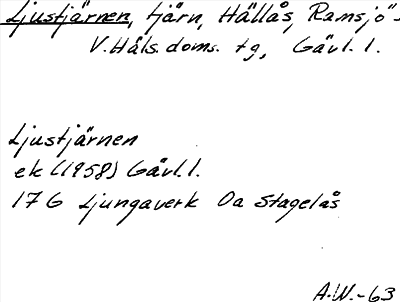 Ljustjärnen, tjärn, Hällås, Ramsjö
V. Häls. doms. tg, Gävl. l.
Ljustjärnen
ek (1958) Gävl. l.
17 G Ljungaverk Oa Stagelås
A.W.-63